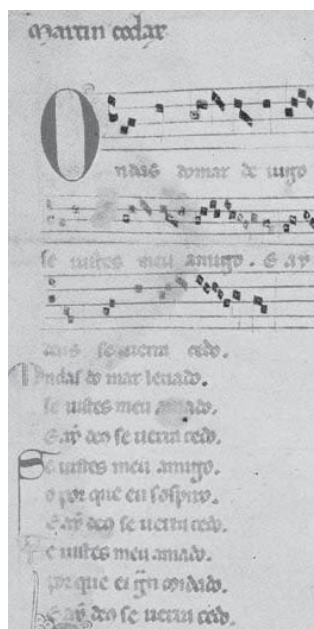 martin codax
Ondas domar de uigo
se uistes meu amigo. E ay
deus se uerra cedo.
Ondas do mar leuado.
se uistes meu amado.
E ay deus se uerra cedo.
Se uistes meu amigo.
o por que eu sospiro.
E ay deus se uerra cedo.
Se uistes meu amado.
por que ei gran coidado.
E ay deus se uerra cedo.